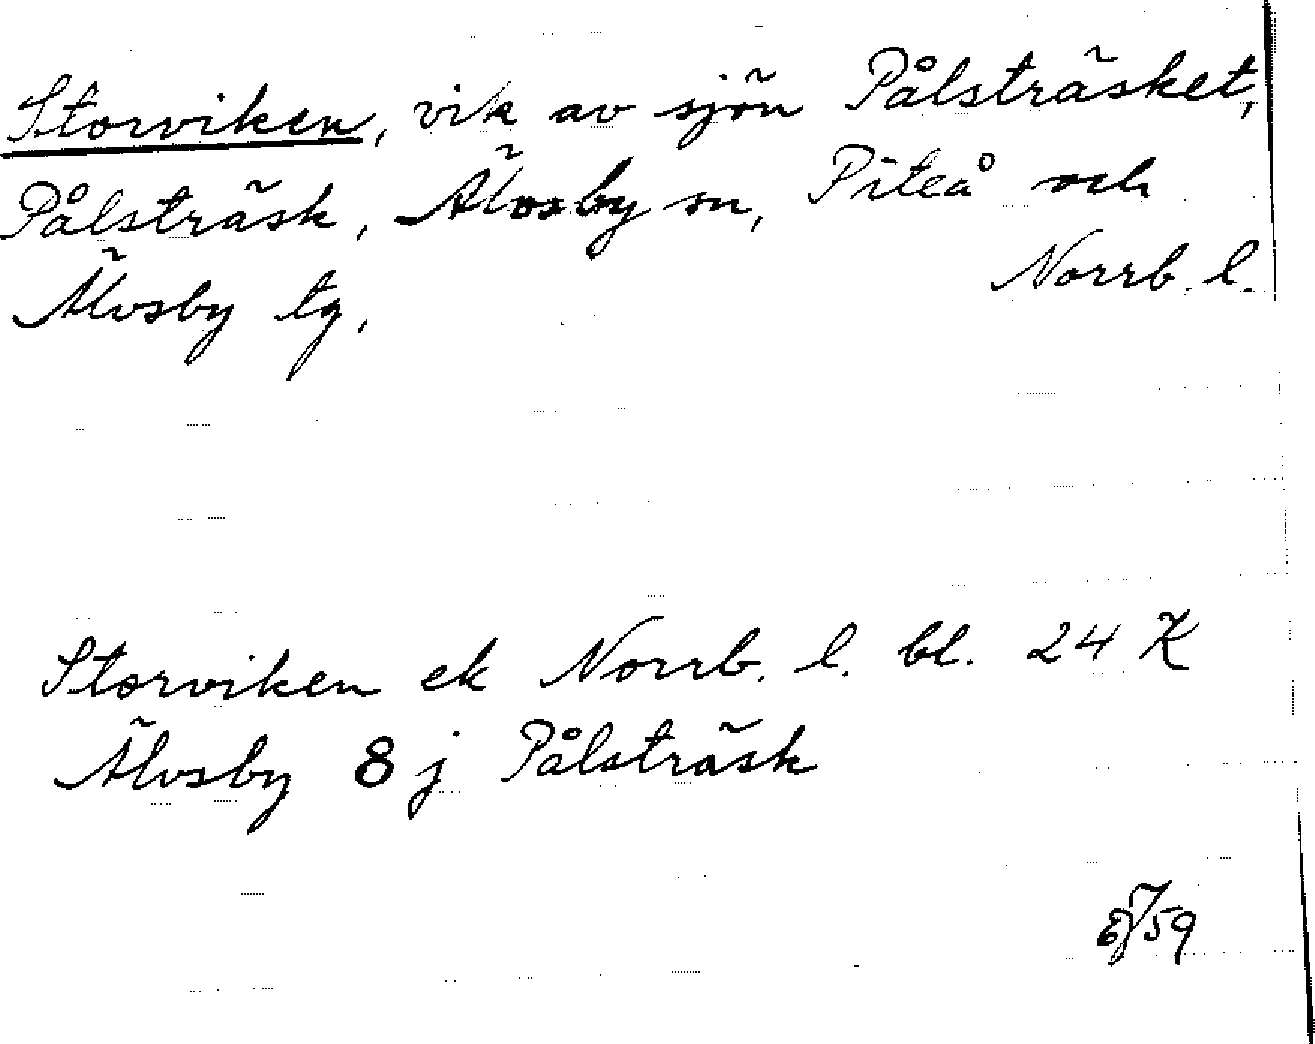 Storviken, vik av sjön Pålsträsket,
Pålsträsk, Älvsby sn, Piteå och
Älvsby tg, Norrb. l.
Storviken ek Norrb. l. bl. 24 K
Älvsby 8 j Pålsträsk
59